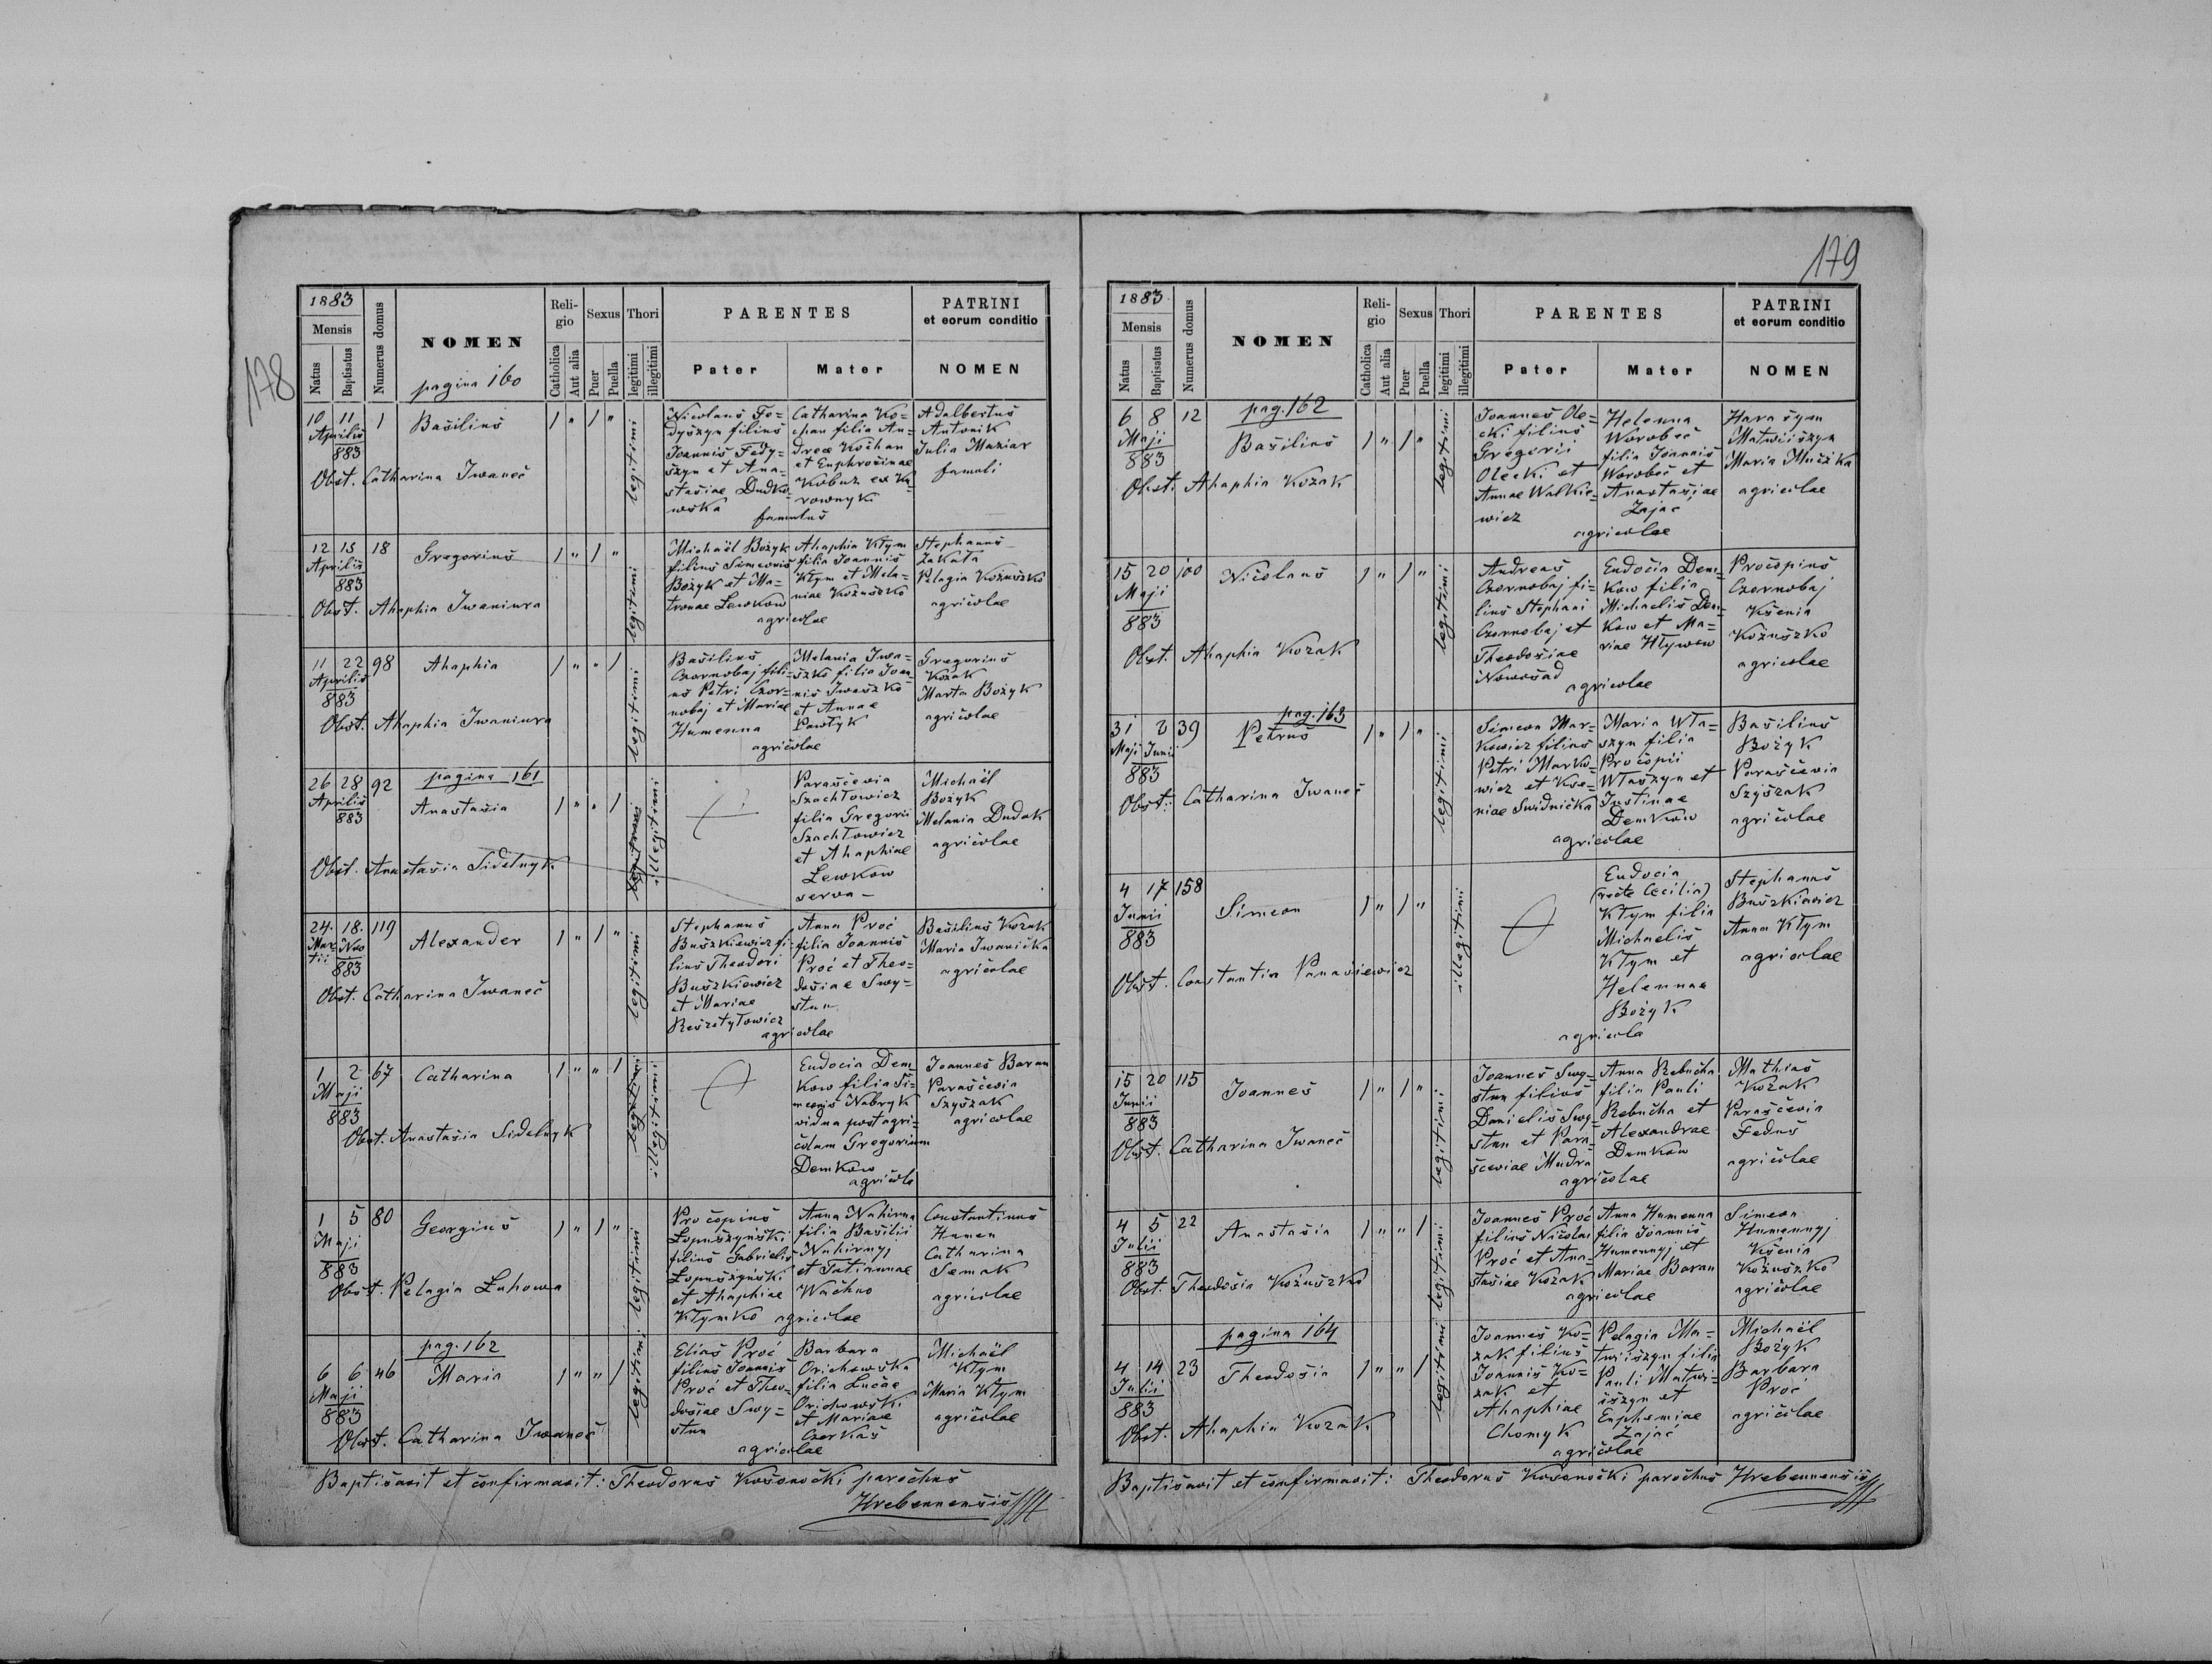 178
1883
Mensis
Natus
Baptisatus
Numerus domus
NOMEN
pagina 160
Reli-
gio
Catholica
Aut alia
Sexus
Puer
Puella
Thori
legitimi
illegitimi
PARENTES
Pater
Mater
PATRINI
et eorum conditio
NOMEN
10 11 1 Basilius 1 " 1 "
Aprilis
883
Obst. Catharina Iwaneć
legitimi
Nicolaus Fe-
dyszyn filius
Joannis Fedy-
szyn et Ana-
stasiae Dudko-
wska
Catharina Ko-
chan filia An-
dreae Kochan
et Euphrosinae
Kobuz ex Ka-
rownyk
famulus
Adalbertus
Antonik
Julia Maziar
famuli
12 13 18 Gregorius 1 " 1 "
Aprilis
883
Obst. Ahaphia Iwaniura
legitimi
Michaël Bożyk
filius Simeonis
Bożyk et Ma-
tronae Lewkow
Ahaphia Kłym
filia Joannis
Kłym et Mela-
niae Kożuszko
agricolae
Stephanus
Zakała
Pelagia Kożuszko
agricolae
11 22 98 Ahaphia 1 " " 1
Aprilis
883
Obst. Ahaphia Iwaniura
legitimi
Basilius
Czornobaj fili-
us Petri Czor-
nobaj et Mariae
Humenna
Melania Iwa-
szko filia Joan-
nis Iwaszko
et Annae
Pawłyk
agricolae
Gregorius
Kozak
Marta Bożyk
agricolae
pagina 161
26 28 92 Anastasia 1 " " 1
Aprilis
883
Obst. Anastasia Sidelnyk
legitimi
illegitimi
Parascevia
Szachłowicz
filia Gregorii
Szachłowicz
et Ahaphiae
Lewkow
serva -
Michaël
Bożyk
Melania Dudok
agricolae
24. 18. 119 Alexander 1 " 1 "
Mar- Nov
tii 883
Obst. Catharina Iwaneć
legitimi
Stephanus
Buszkiewicz fi-
lius Theodori
Buszkiewicz
et Mariae
Reszetyłowicz
Anna Proć
filia Joannis
Proć et Theo-
dosiae Swy-
stun
agricolae
Basilius Kozak
Maria Iwanicka
agricolae
1 2 67 Catharina 1 " " 1
Maji
883
Obst. Anastasia Sidelnyk
legitimi
illegitimi
Eudocia Dem-
kow filia Si-
meonis Nabryk
vidua post agri-
colam Gregorium
Demkow
agricola
Joannes Baran
Parascevia
Szyszak
agricolae
1 5 80 Georgius 1 " 1 "
Maji
883
Obst. Pelagia Łuhowa
legitimi
Procopius
Łopuszyński
filius Gabrielis
Łopuszyński
et Ahaphiae
Kłymko
Anna Nahirna
filia Basilii
Nahirnyj
et Tatiannae
Wachno
agricolae
Constantinus
Humen
Catharina
Semak
agricolae
pag. 162
6 6 46 Maria 1 " " 1
Maji
883
Obst. Catharina Iwaneć
legitimi
Elias Proć
filius Joannis
Proć et Theo-
dosiae Swy-
stun
Barbara
Orichowska
filia Lucae
Orichowski
et Mariae
Czerkas
agricolae
Michaël
Kłym
Maria Kłym
agricolae
Baptisavit et confirmavit: Theodorus Kosonocki parochus
Hrebennensis
179
1883
Mensis
Natus
Baptisatus
Numerus domus
NOMEN
Reli-
gio
Catholica
Aut alia
Sexus
Puer
Puella
Thori
legitimi
illegitimi
PARENTES
Pater
Mater
PATRINI
et eorum conditio
NOMEN
pag. 162
6 8 12 Basilius 1 " 1 "
Maji
883
Obst. Ahaphia Kozak
legitimi
Joannes Ole-
cki filius
Gregorii
Olecki et
Annae Walkie-
wicz
Helenna
Worobeć
filia Joannis
Worobeć et
Anastasiae
Zając
agricolae
Harasym
Matwiiszyn
Maria Muczka
agricolae
15 20 100 Nicolaus 1 " 1 "
Maji
883
Obst. Ahaphia Kozak
legitimi
Andreas
Czornobaj fi-
lius Stephani
Czornobaj et
Theodosiae
Nowosad
Eudocia Dem-
kow filia
Michaelis Dem-
kow et Ma-
riae Hływow
agricolae
Procopius
Czornobaj
Ksenia
Kożuszko
agricolae
pag. 163
31 2 39 Petrus 1 " 1 "
Maji Junii
883
Obst: Catharina Iwaneć
legitimi
Simeon Mar-
kowicz filius
Petri Marko-
wicz et Kse-
niae Swidnicka
Maria Wła-
szyn filia
Procopii
Właszyn et
Justinae
Demkow
agricolae
Basilius
Bożyk
Parascevia
Szyszak
agricolae
4 17 158 Simeon 1 " 1 "
Junii
883
Obst. Constantia Panasiewicz
illegitimi
Eudocia
(recte Cecilia)
Kłym filia
Michaelis
Kłym et
Helennae
Bożyk
agricola
Stephanus
Buszkiewicz
Anna Kłym
agricolae
15 20 115 Joannes 1 " 1 "
Junii
883
Obst. Catharina Iwaneć
legitimi
Joannes Swy-
stun filius
Danielis Swy-
stun et Para-
sceviae Mudra
Anna Rebucha
filia Pauli
Rebucha et
Alexandrae
Demkow
agricolae
Mathias
Kozak
Parascevia
Fedus
agricolae
4 5 22 Anastasia 1 " " 1
Julii
883
Obst. Theodosia Kożuszko
legitimi
Joannes Proć
filius Nicolai
Proć et Ana-
stasiae Kozak
Anna Humenna
filia Joannis
Humennyj et
Mariae Baran
agricolae
Simeon
Humennyj
Ksenia
Kożuszko
agricolae
pagina 164
4 14 23 Theodosia 1 " " 1
Julii
883
Obst. Ahaphia Kozak
legitimi
Joannes Ko-
zak filius
Joannis Ko-
zak et
Ahaphiae
Chomyk
Pelagia Ma-
twiiszyn filia
Pauli Matwi-
iszyn et
Euphemiae
Zając
agricolae
Michaël
Bożyk
Barbara
Proć
agricolae
Baptisavit et confirmavit: Theodorus Kosonocki parochus Hrebennensis